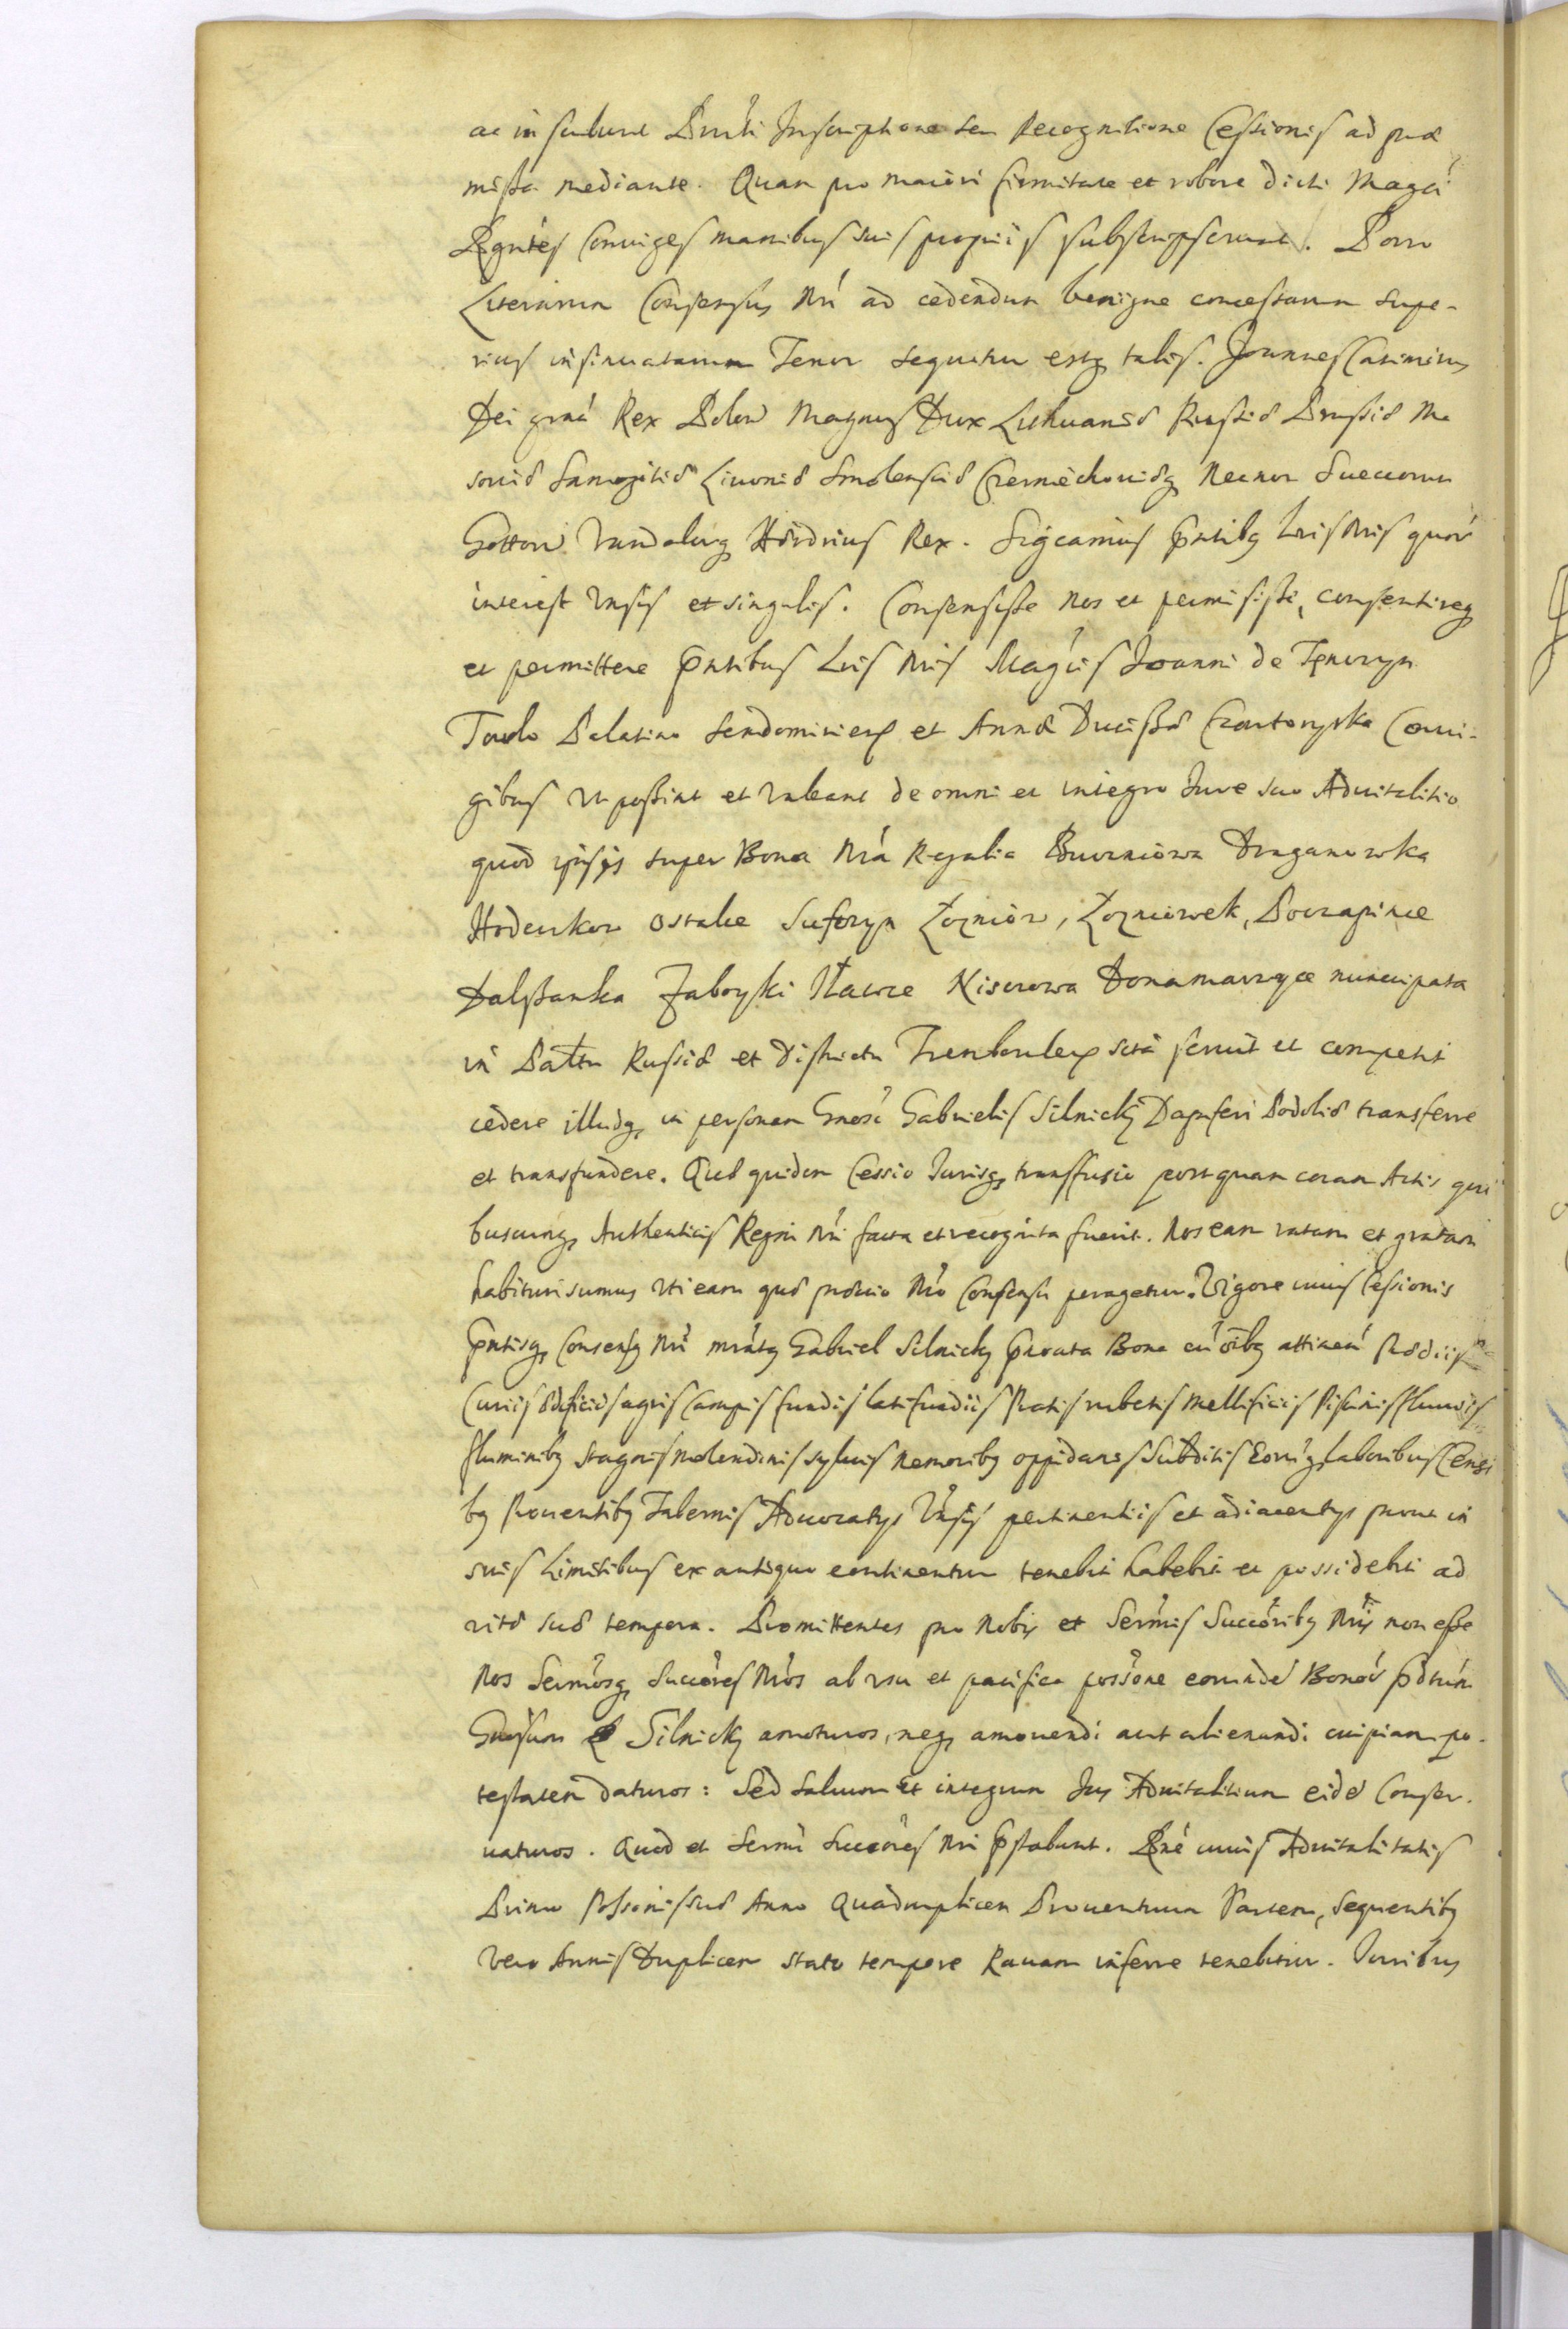 ac in scu Inscriptione seu Recognitione Cessionis ad præ
missa mediante. Quam pro maiori firmitate et robore dicti Magcí
Rgntés Coniuges manibus suis proprijs subscripserunt. Porro
Literarum Consensus Nrí ad cedendum benigne concessarum supe-
rius insinuatarum Tenor sequitur estq talis. Joannes Casimirus
Dei grná Rex Polon Magnus Dux Lithuaniæ Russiæ Prussiæ Ma
soviæ Samogitiæ Livoniæ Smolensciæ Czerniechoviæq Necnon Suecorum
Gottorū Vandalorūq Hærdrius Rex. Sigcamus Pntibq Lris Nris quorū
interest Vnsis et singulis. Consensisse Nos et permisisse, consentireq
et permittere Pntibus Lris Nris Magcis Joanni de Tęnczyn
Palatino Sendomirien et Annæ Ducissæ Czartoryska Coniu-
gibus Vt possint et valeant de omni et integro Jure suo Aduitalitio
quod ipsis super Bona Nrá Regalia Buczniowa Draganowka
Hodenkow Ostalce Suforyn Łoznïow, Łozniówek, Poczapince
Zaboyki Nisczowa Donamarzyce nuncupata
in Pałtu Russiæ et Districtu Trenboulen sitá seruit et competit
cedere illudq in personam Gnosi Gabrielis Silnicky Dapiferi Podoliæ transferre
et transfundere. Quæ quidem Cessio Jurisq transfusio postquam coram Actis qui
buscunq Authenticis Regni Nri facta et recognita fuerit. Nos eam ratam et gratam
habituri sumus Vti eam quæ præuio Nro Consensu peragetur. Vigore cuius Cessionis
Pntisq Consensq Nri mrátq Gabriel Silnicky Prouta Bona cū oībq attinen Prædiis
Curijs ædificiis agris Campis fundis latifundiis Pratis rubetis Mellificiis Piscinis fluuiis
fluminibq Stagnis Molendinis syluis Nemoribq oppidanis Subditis Eorūq laboribus Censi
bq Prouentibq Tabernis Aduocatys Vnsis pertinentiis et adiacentys prout in
suis Limitibus ex antiquo continentur tenebit habebit et possidebit ad
vitæ suæ tempora. Promittentes pro Nobis et Sermis Succoribq Nris non esse
Nos Sermosq Succores Nros ab vsu et pacifica possone eorunde Bonorū Pdtum
Gnosum Silnicky amoturos, neq amouendi aut alienandi cuipiam po-
testatem daturos: Sed saluum et integrum Jus Aduitalitium eide Conser-
uaturos. Quod et Sermi Succores Nri Pstabunt. Rne cuius Aduitalitatis
Primo Possonis suæ Anno Quadruplicem Prouentuum Partem, Sequentibq
Vero Annis Duplicem stato tempore Rauam inferre tenebitur. Juribus